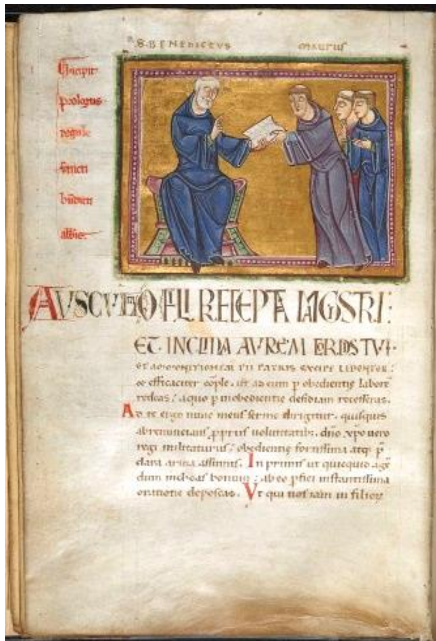 S. BENEDICTVS MAVRVS
Incipit
prologus
regule
sancti
abbis
AVSCVLTA O FILI PRECEPTA MAGISTRI:
ET INCLINA AVREM CORDIS TVI.
ET ADMONITIONEM PII PATRIS EXCIPE LIBENTER:
et efficaciter cople. ut ad eum p obedientie labore
redeas: a quo p inobedientie desidiam recesseras.
Ad te ergo nunc meus sermo dirigitur. quisquis
abrenuncians ppriis voluntatib. dño xpo vero
regi militaturus: obedientie fortissima atq p
clara arma assumis. In primis ut quicquid ag
dum inchoas bonum: ab eo pfici instantissima
oratione deposcas. Vt qui nos iam in filiorz